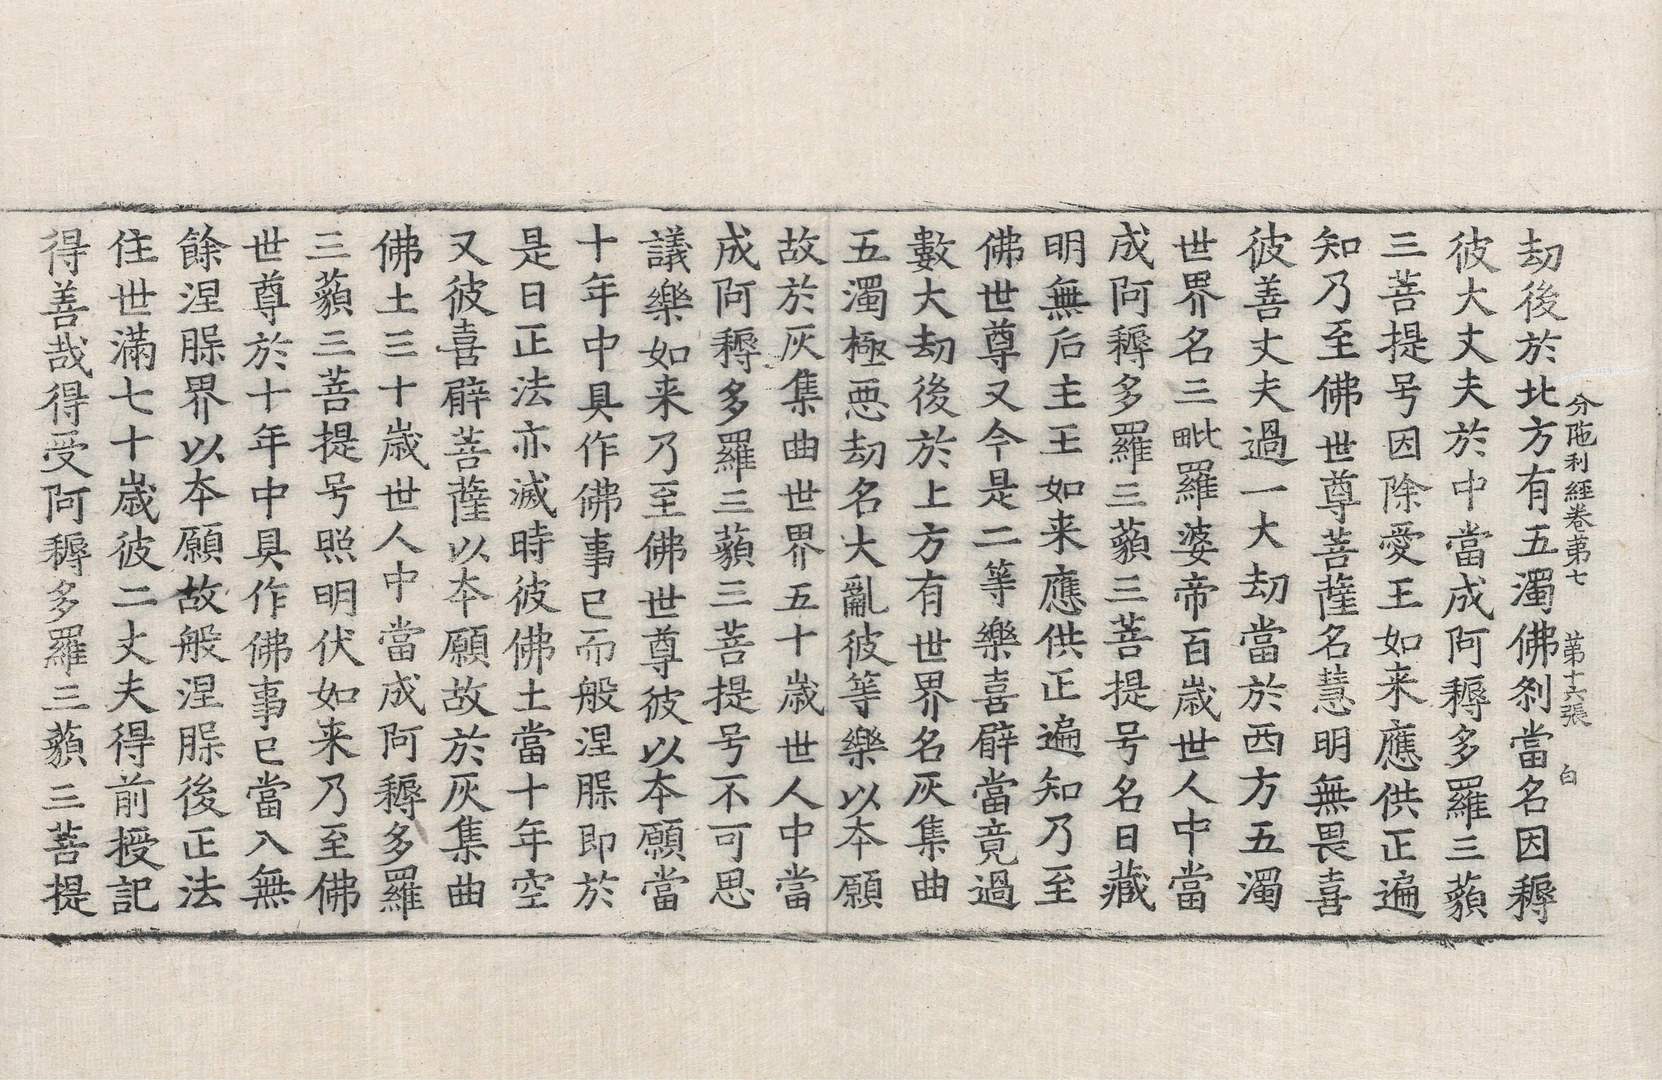 分陁利經卷苐七　苐十六張　白
劫後於北方有五濁佛刹當名因耨
彼大丈夫於中當成阿耨多羅三藐
三菩提号因除愛王如来應供正遍
知乃至佛世尊菩薩名慧明無畏喜
彼善丈夫過一大劫當於西方五濁
世界名三毗羅婆帝百歳世人中當
成阿耨多羅三藐三菩提号名日藏
明無后主王如来應供正遍知乃至
佛世尊又今是二等樂喜辟當竟過
數大劫後於上方有世界名灰集曲
五濁極惡劫名大亂彼等樂以本願
故於灰集曲世界五十歳世人中當
成阿耨多羅三藐三菩提号不可思
議樂如来乃至佛世尊彼以本願當
十年中具作佛事已而般涅槃即於
是日正法亦滅時彼佛土當十年空
又彼喜辟菩薩以本願故於灰集曲
佛土三十歳世人中當成阿耨多羅
三藐三菩提号照明伏如来乃至佛
世尊於十年中具作佛事已當入無
餘涅槃界以本願故般涅槃後正法
住世滿七十歳彼二丈夫得前授記
得善哉得受阿耨多羅三藐三菩提